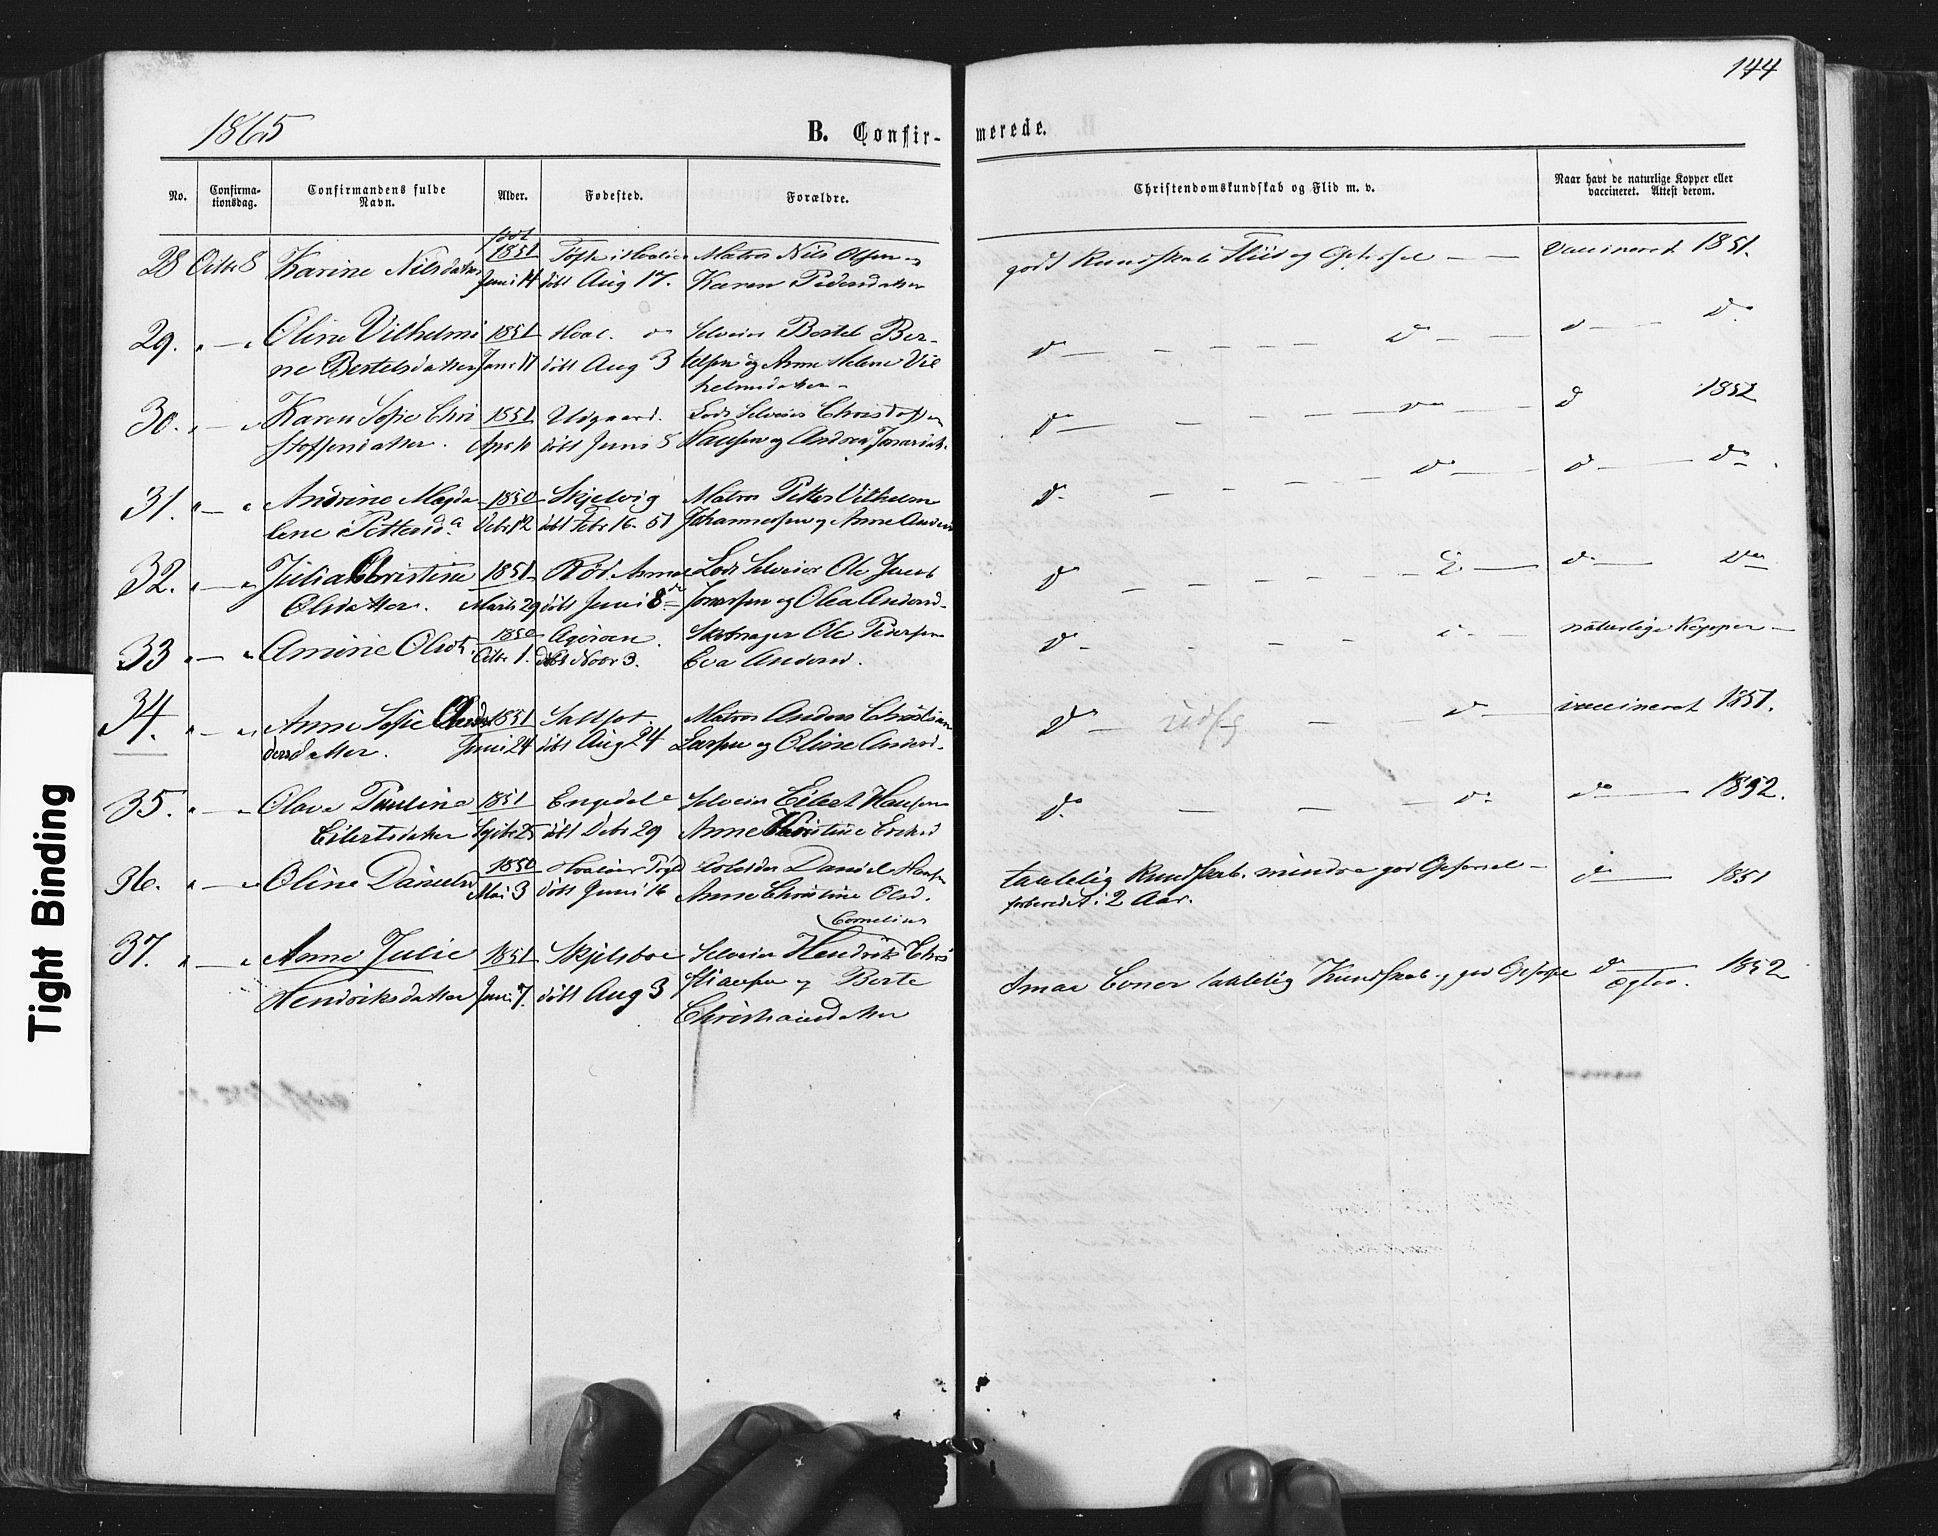 144
1865
B. Confir-
merede.
No.
Confirma-
tionsdag.
Confirmandens fulde
Navn.
Alder.
Fødested.
Forældre.
Christendomskundskab og Flid m. v.
Naar havt de naturlige Kopper eller
vaccineret. Attest derom.
født
28 Octbr 8 Karine Nilsdatter 1851 Matros Nils Olsen og
Juni 14 døbt Aug 17. Karen Pedersdatter
godt Kundskab Fliid og Opførsel — — Vaccineret 1851.
29. " — " Oline Vilhelmi 1851 Hval. Selveier Bertel Ber-
ne Bertelsdatter Juni 17 døbt Aug 3 telsen og Anne Helene Vil
helmsdatter
do — — — — — do — do — do
30. " — " Karen Sofie Chri 1851 Udgaard. Lods Selveier Christoffer
stoffersdatter. Apr 10 døbt Juni 5 Hansen og Andrea
do — — — — do — do 1852
31. " — " Andrine Magda 1850 Skjelvig Matros Petter Vilhelm
lene Petersd. Debr 12 døbt Febr 16. 51 Johannesen og Anne
do — — — — do — do — do
32. " — " Julia Christine 1851 Rød Lods Selveier Ole Jacob
Olsdatter. Marts 29 døbt Juni 8 og Olea Andersd.
do — — — — — do — do
33 " — " Amine Olsdt. 1850 Ole Pedersen
Octbr 1. døbt Novr 3. Eva Andersd.
do — — — — naturlige Kopper —
34. " — " Anne Sofie 1851 Matros Anders Christian
dersdatter. Juni 24 døbt Aug 24 Larsen og Oline Andersd.
do — — do — vaccineret 1851.
35. " — " Olava Pauline 1851 Engedal Selveier Eilert Hansen
Eilertsdatter døbt Debr 29 Anne Christine
do — — — — do — do — 1852.
36. " — " Oline Danielsd 1850 Daniel Hansen
Mai 3 døbt Juni 16 Anne Christine Olsd.
taalelig Kundskab. mindre god Opførsel — do — 1851
forberedt i 2 Aar.
Cornelius
37. " — " Anne Julie 1851 Skjelsboe Selveier Hendrik Chri
Hendriksdatter Juni 7. døbt Aug 3 stiansen og Berte
Christiansdatter
Smaa Evner taalelig Kundskab og god Opførsel do — 1852
Tight Binding